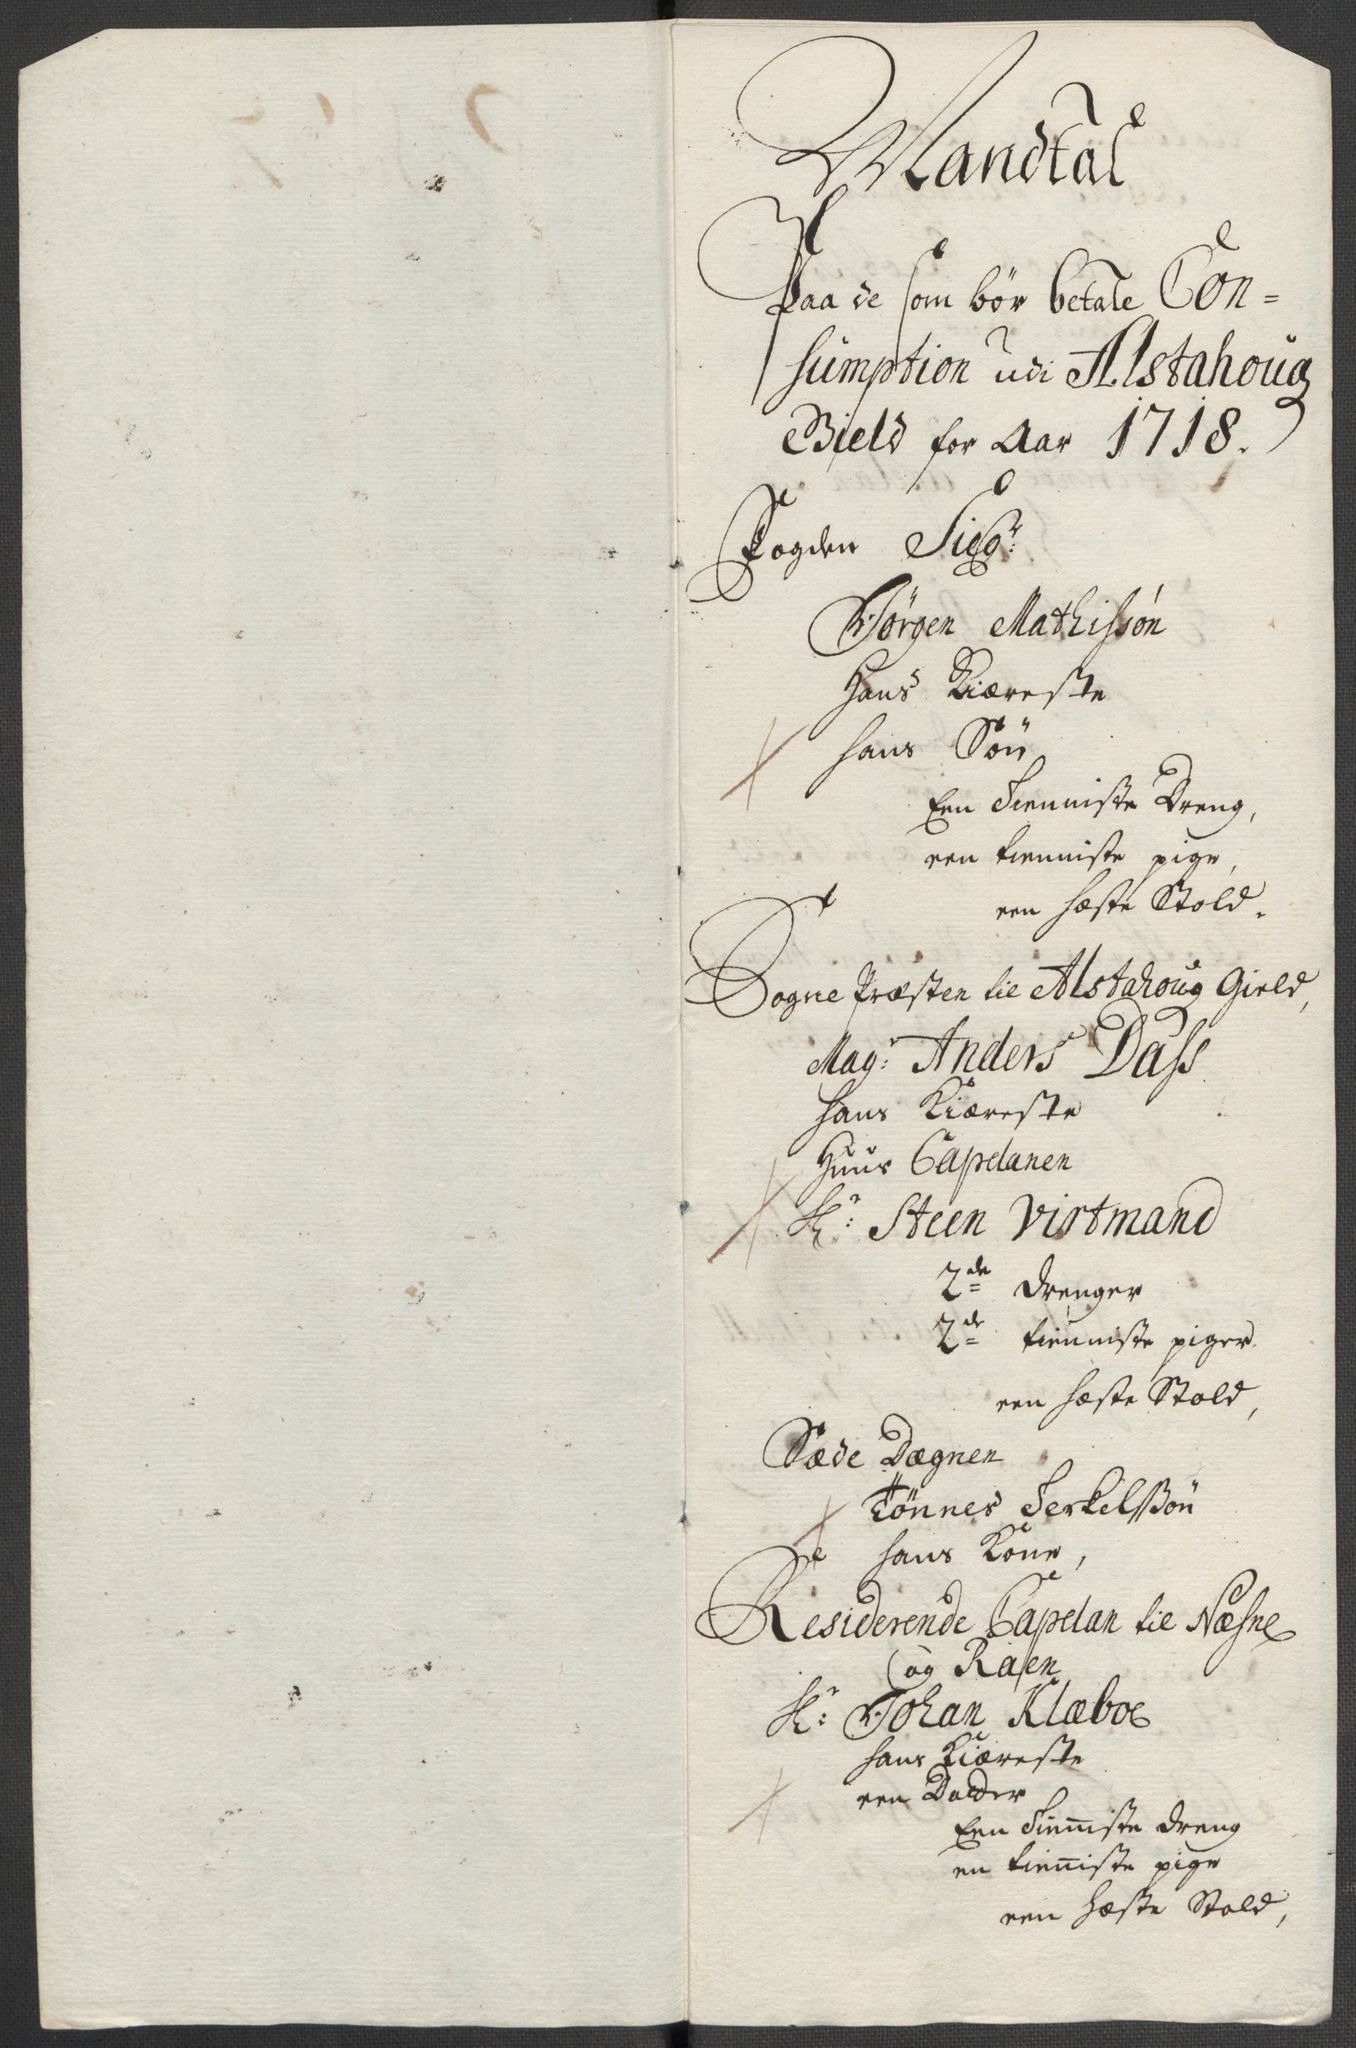 Mandtal
Paa de som bör betale Con=
sumption udi Alstahoug
Gield for Aar 1718.
Fogden Sigr:
Jörgen Mathissön
Hans Kiæreste
hans Sön
Een Tienniste Dreng,
een tienniste pige,
een hæste Stold.
Sogne Præsten til Alstahoug Gield,
Magr: Anders Dass
hans Kiæreste
Huus Capelanen
Hr: Steen Virtmand
2de drenger
2de tienniste piger
een hæste Stold,
Sæde Dægnen
Tönnes Terkelssön
hans Kone,
Residerende Capelan til Næsne
og Raen
Hr: Johan Klæboe
hans Kiæreste
een Datter
Een Tienniste dreng
en tienniste pige
een hæste Stold,